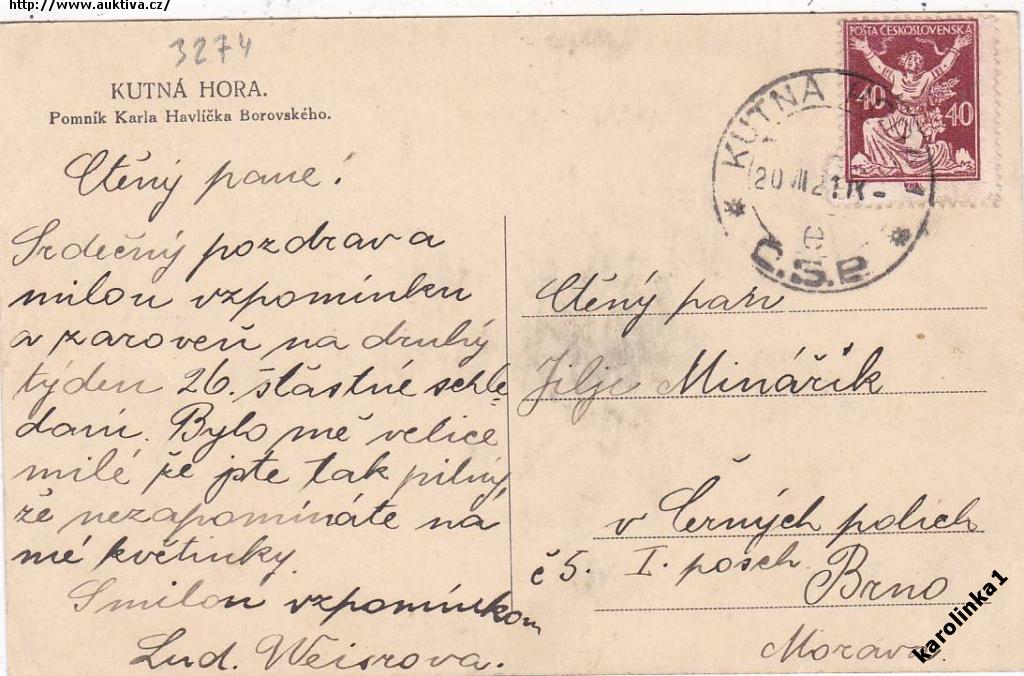 http://www.auktiva.cz/
3274
KUTNÁ HORA.
Pomník Karla Havlíčka Borovského.
POŠTA ČESKOSLOVENSKÁ
40 40
KUTNÁ
20 VII 21
Č.S.P.
Ctěný pane!
Srdečný pozdrav a
milou vzpomínku
a zaroveň na druhý
týden 26. štastné schle
daní. Bylo mě velice
milé že jste tak pilný,
že nezapomínáte na
mé květinky.
S milou vzpomínkou
Lud. Weisrova.
Ctěný pan
Jilji Minářik
v Černých polich
č 5. I. posch.
Brno
Morava.
karolinka1